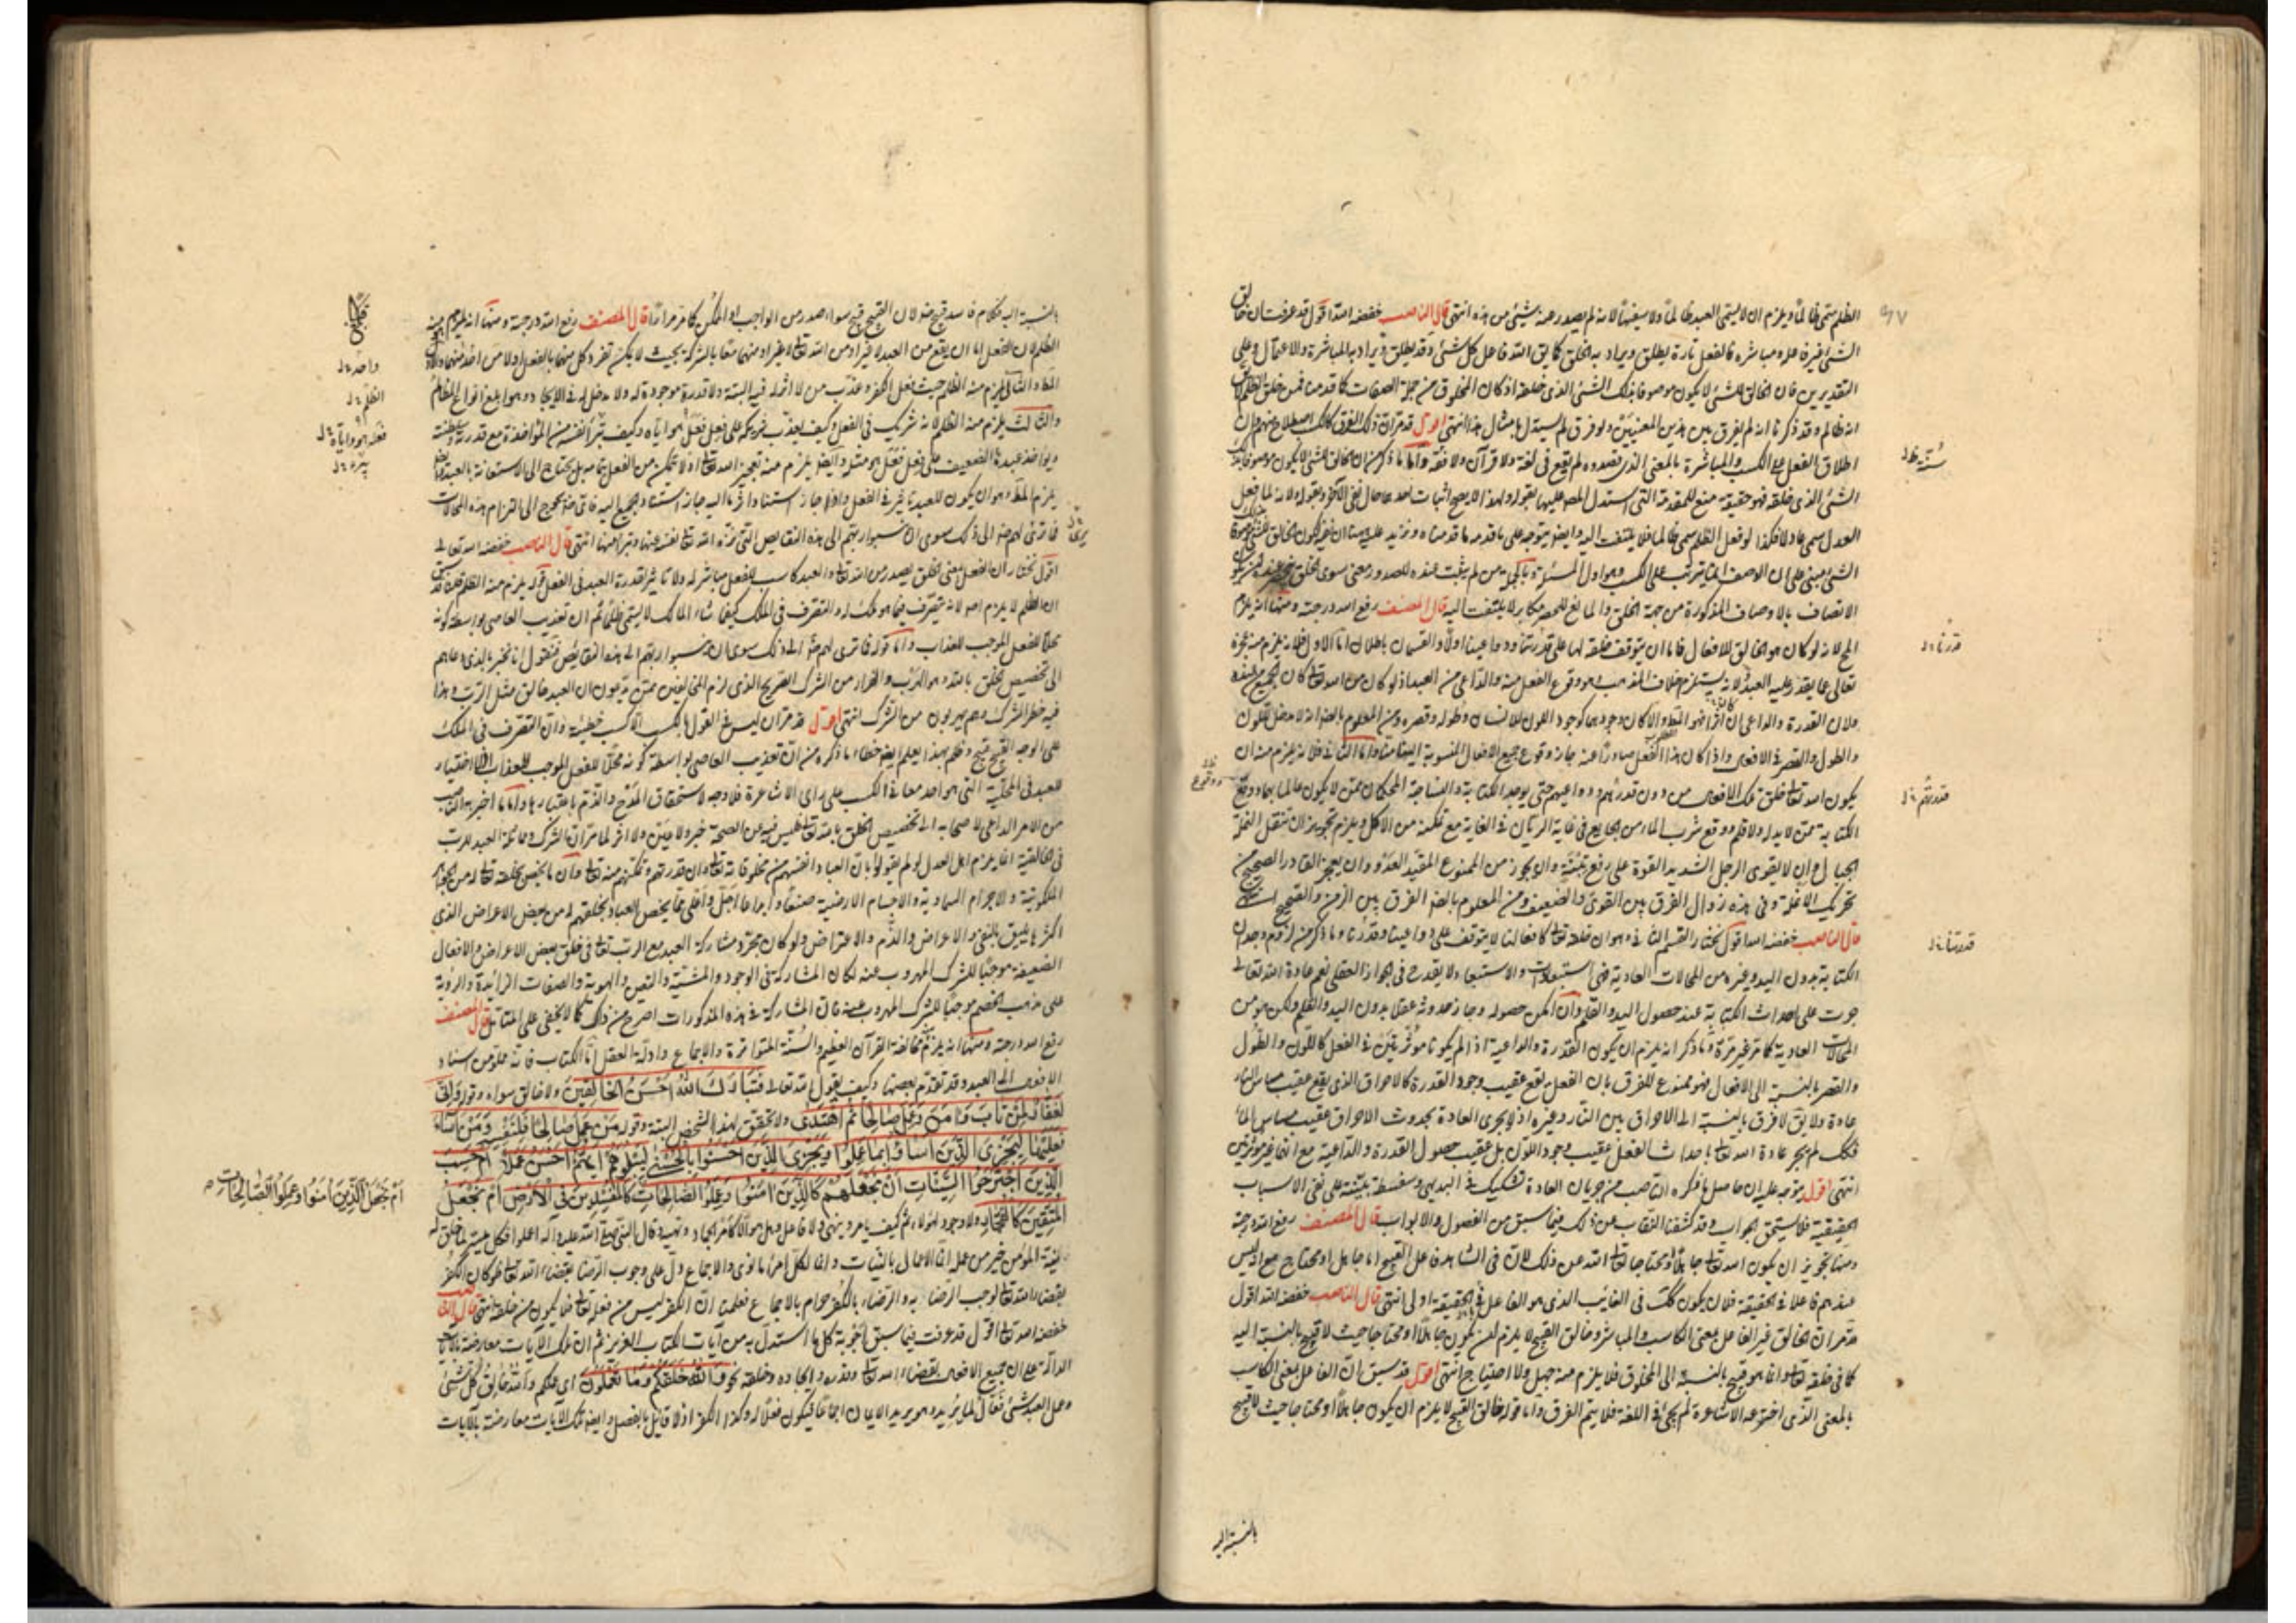 الظلم سمي ظالما ويلزم ان لا يسمى العبد ظالما ولا سفيها لانه لم يصدر عنه شيئ من هذه انتهى قال الناصب خفضه الله اقول قد عرفت ان خالق
الشئ غير فاعله ومباشره فالفعل تارة يطلق ويراد به الخلق كما يق الله فاعل كل شئ وقد يطلق ويراد به المباشرة والاعتمال وعلى
التقديرين فان الخالق للشئ لا يكون موصوفا بذلك الشئ الذي خلقه اذ كان المخلوق من جملة الصفات كما قدمنا فمن خلق الظلم لا يق
انه ظالم وقد ذكرنا انه لم يفرق بين هذين المعنيين ولو فرق لم يستدل بامثال هذا انتهى اقول قد مر ان ذلك الفرق كالكسب اصطلاح منهم وان
اطلاق الفعل على الكسب والمباشرة بالمعنى الذي قصدوه لم يقع في لغة ولا قرآن ولا فقه واما ما ذكره من ان الخالق للشئ لا يكون موصوفا بذلك
الشئ الذي خلقه فهو حقيقة منع للمقدمة التي استدل المص عليها بقوله ولهذا لا يصح اثبات احدهما حال نفي الآخر وبقوله ولانه لما فعل
العدل سمي عادلا فكذا لو فعل الظلم سمي ظالما فلا يلتفت اليه وايضا يتوجه على ما قدمه ما قدمناه ونزيد عليه هنا ان
الشئ مبني على ان الاتصاف انما يترتب على الكسب وهو اول المسئلة وبالجملة من لم يثبت عنده للصدور معنى سوى الخلق
الاتصاف بالاوصاف المذكورة من جهة الخلق والمانع للحصر مكابر لا يلتفت اليه قال المصنف رفع الله درجته ومنها انه يلزم
المح لانه لو كان هو الخالق للافعال فاما ان يتوقف خلقه لها على قدرتنا ودواعينا اولا والقسمان باطلان اما الاول فلانه يلزم منه عجزه
تعالى عما يقدر عليه العبد ولانه يستلزم خلاف المذهب وهو وقوع الفعل منه والداعي من العبد اذ لو كان من الله تعالى كان الجميع من عنده
ولان القدرة والداعي ان اثرا فهو المط والا كان وجودهما كوجود اللون للانسان وطوله وقصره ومن المعلوم بالضرورة انه لا مدخل للون
والطول والقصر في الافعال واذا كان هذا الفعل صادرا عنه جاز وقوع جميع الافعال المنسوبة الينا منا واما الثاني فلانه يلزم منه ان
يكون الله تعالى خلق تلك الافعال من دون قدرهم ودواعيهم حتى يوجد الكتابة والنساجة المحكمتان ممن لا يكون عالما بهما ووقع
الكتابة ممن لا يد له ولا قلم ووقع شرب الماء من الجايع في غاية الريان في الغاية مع تمكنه من الاكل ويلزم تجويز ان تنقل النملة
الجبال وان لا يقوى الرجل الشديد القوة على رفع تبنة وان يجوز من الممنوع المقيد العدو وان يعجز القادر الصحيح من
تحريك الانملة وفي هذه زوال الفرق بين القوي والضعيف ومن المعلوم بالضرورة الفرق بين الزمن والصحيح انتهى
قال الناصب خفضه الله اقول نختار القسم الثاني وهو ان خلقه تعالى لافعالنا لا يتوقف على دواعينا وقدرتنا وما ذكره من لزوم وجدان
الكتابة بدون اليد وغيره من المحالات العادية فهي استبعادات والاستبعاد لا يقدح في الجواز العقلي نعم عادة الله تعالى
جرت على احداث الكتابة عند حصول اليد والقلم وان امكن حصوله وجاز حدوثه عقلا بدون اليد والقلم ولكن هو من
المحالات العادية كما مر غير مرة وما ذكر انه يلزم ان يكون القدرة والداعية اذا لم يكونا مؤثرين في الفعل كاللون والطول
والقصر بالنسبة الى الافعال فهو ممنوع للفرق بان الفعل يقع عقيب وجود القدرة كالاحراق الذي يقع عقيب مساس النار
عادة ولا يق لا فرق بالنسبة الى الاحراق بين النار وغيره اذ لا يجري العادة بحدوث الاحراق عقيب مساس الماء
فكذلك لم يجر عادة الله تعالى باحداث الفعل عقيب وجود اللون بل عقيب حصول القدرة والداعية مع انهما غير مؤثرين
انتهى اقول يتوجه عليه ان حاصل ما ذكره الناصب من جريان العادة تشكيك في البديهي وسفسطة مبتنية على نفي الاسباب
الحقيقية فلا يستحق الجواب وقد كشفنا النقاب عن ذلك فيما سبق من الفصول والابواب قال المصنف رفع الله درجته
ومنها تجويز ان يكون الله تعالى جاهلا او محتاجا تعالى الله عن ذلك لان في الشاهد فاعل القبيح اما جاهل او محتاج مع انه ليس
عندهم فاعلا في الحقيقة فلان يكون كذلك في الغايب الذي هو الفاعل في الحقيقة اولى انتهى قال الناصب خفضه الله اقول
قد مر ان الخالق غير الفاعل بمعنى الكاسب والمباشر وخالق القبيح لا يلزم ان يكون جاهلا او محتاجا حيث لا قبيح بالنسبة اليه
كما في خلقه تعالى وانما هو قبيح بالنسبة الى المخلوق فلا يلزم منه جهل ولا احتياج انتهى اقول قد سبق ان الفاعل بمعنى الكاسب
بالمعنى الذي اخترعه الاشاعرة لم يجئ في اللغة فلا يتم الفرق واما قوله خالق القبيح لا يلزم ان يكون جاهلا او محتاجا حيث لا قبيح
بالنسبة اليه
بالنسبة اليه فكلام فاسد قبيح منه لان القبيح قبيح سواء صدر من الواجب او الممكن كما مر مرارا قال المصنف رفع الله درجته ومنها انه يلزم منه
الظلم لان الفعل اما ان يقع من العبد لا غير او من الله تعالى لا غير او منهما معا بالشركة بحيث لا يمكن تفرد كل منهما بالفعل اولا من احد منهما والاول
المط والثاني يلزم منه الظلم حيث فعل الكفر وعذب من لا اثر له فيه البتة ولا قدرة موجودة له ولا مدخل له في الايجاد وهو ابلغ انواع الظلم
والثالث يلزم منه الظلم لانه شريك في الفعل وكيف يعذب شريكه على فعل فعله هو واياه وكيف يبرأ نفسه من المؤاخذة مع قدرته وسلطنته
ويؤاخذ عبده الضعيف على فعل فعل هو مثله وايضا يلزم منه تعجيز الله تعالى اذ لا يتمكن من الفعل بتمامه بل يحتاج الى الاستعانة بالعبد
يلزم المط وهو ان يكون للعبد تاثير في الفعل واذا جاز استناد اثر ما اليه جاز استناد الجميع اليه فاي ضرورة تحوج الى التزام هذه المحالات
فما ترى لهم ضرورة الى ذلك سوى ان نسبوا ربهم الى هذه النقايص التي نزه الله تعالى نفسه عنها وتبرأ منها انتهى قال الناصب خفضه الله تعالى
اقول نختار ان الفعل بمعنى الخلق يصدر من الله تعالى والعبد كاسب للفعل مباشر له ولا تاثير لقدرة العبد في الفعل قوله يلزم منه الظلم قلنا قد سبق
ان الظلم لا يلزم اصلا لانه يتصرف فيما هو ملك له والتصرف في الملك كيفما شاء المالك لا يسمى ظلما ثم ان تعذيب العاصي بواسطة كونه
محلا للفعل الموجب للعذاب واما قوله فما ترى لهم ضرورة الى ذلك سوى ان نسبوا ربهم الى هذه النقايص فنقول انا نخبر بالذي دعاهم
الى تخصيص الخلق بالله وهو الهرب والفرار من الشرك الصريح الذي لزم المخالفين ممن يدعون ان العبد خالق مثل الرب وهذا
فيه خطر الشرك وهم يهربون من الشرك انتهى اقول قد مر ان ليس في القول بالكسب الا كسب خطيئة وان التصرف في الملك
على الوجه القبيح قبيح وظلم وبهذا يعلم ايضا خطاء ما ذكره من ان تعذيب العاصي بواسطة كونه محلا للفعل الموجب للعذاب اذ لا اختيار
للعبد في المحلية التي هو احد معاني الكسب على راي الاشاعرة فلا وجه لاستحقاق المدح والذم باعتبارها واما ما اخبر به الناصب
من الامر الداعي لاصحابه الى تخصيص الخلق بالله تعالى فليس فيه عن الصحة خبر ولا عين ولا اثر لما مر ان الشرك ومماثلة العبد للرب
في الخالقية انما يلزم اهل العدل لو لم يقولوا بان العباد انفسهم من مخلوقاته تعالى وان قدرتهم وتمكنهم منه تعالى وان ما يختص بخلقه تعالى من الجواهر
الملكوتية والاجرام السماوية والاجسام الارضية صنعا وابداعا اجل واعلى مما يخص العباد بخلقهم له من بعض الاعراض الذي
اكثرها يليق بالنفي والاعراض والذم والاعتراض ولو كان مجرد مشاركة العبد مع الرب تعالى في خلق بعض الاعراض والافعال
الضعيفة موجبا للشرك المهروب عنه لكان المشاركة في الوجود والمشيئة والتعين والهوية والصفات الزائدة والرؤية
على مذهب الخصم موجبا للشرك المهروب عنه فان المشاركة في هذه المذكورات اصرح من ذلك كما لا يخفى على المتامل قال المصنف
رفع الله درجته ومنها انه يلزم مخالفة القرآن العظيم والسنة المتواترة والاجماع وادلة العقل اما الكتاب فانه مملو من اسناد
الافعال الى العبيد وقد تقدم بعضها وكيف يقول الله تعالى فَتَبَارَكَ اللهُ اَحْسَنُ الْخَالِقِينَ ولا خالق سواه وقوله وَاِنِّي
لَغَفَّارٌ لِمَنْ تَابَ وَآمَنَ وَعَمِلَ صَالِحًا ثُمَّ اهْتَدَى ولا تحقق لهذا الشخص البتة وقوله مَنْ عَمِلَ صَالِحًا فَلِنَفْسِهِ وَمَنْ اَسَاءَ
فَعَلَيْهَا لِيَجْزِيَ الَّذِينَ اَسَاؤُا بِمَا عَمِلُوا وَيَجْزِيَ الَّذِينَ اَحْسَنُوا بِالْحُسْنَى لِيَبْلُوَكُمْ اَيُّكُمْ اَحْسَنُ عَمَلًا اَمْ حَسِبَ
الَّذِينَ اجْتَرَحُوا السَّيِّئَاتِ اَنْ نَجْعَلَهُمْ كَالَّذِينَ آمَنُوا وَعَمِلُوا الصَّالِحَاتِ كَالْمُفْسِدِينَ فِي الْاَرْضِ اَمْ نَجْعَلُ
الْمُتَّقِينَ كَالْفُجَّارِ ولا وجود لهؤلاء ثم كيف يامر وينهى ولا فاعل وهل هو الا كامر الجماد ونهيه وقال النبي صلى الله عليه وآله اعملوا فكل ميسر لما خلق له
نية المؤمن خير من عمله انما الاعمال بالنيات وانما لكل امرئ ما نوى والاجماع دل على وجوب الرضا بقضاء الله تعالى فلو كان الكفر
بقضاء الله تعالى لوجب الرضاء به والرضاء بالكفر حرام بالاجماع فعلمنا ان الكفر ليس من فعله تعالى فلا يكون من خلقه انتهى قال الناصب
خفضه الله تعالى اقول قد عرفت فيما سبق اجوبة كل ما استدل به من آيات الكتاب العزيز ثم ان تلك الآيات معارضة بالآيات
الدالة على ان جميع الافعال بقضاء الله تعالى وقدره وايجاده وخلقه نحو وَاللهُ خَلَقَكُمْ وَمَا تَعْمَلُونَ اي عملكم والله خالق كل شئ
وعمل العبد شئ فعال لما يريد وهو يريد الايمان اجماعا فيكون فعلا له وكذا الكفر اذ لا قائل بالفصل وايضا تلك الآيات معارضة بالآيات
اَمْ نَجْعَلُ الَّذِينَ آمَنُوا وَعَمِلُوا الصَّالِحَاتِ